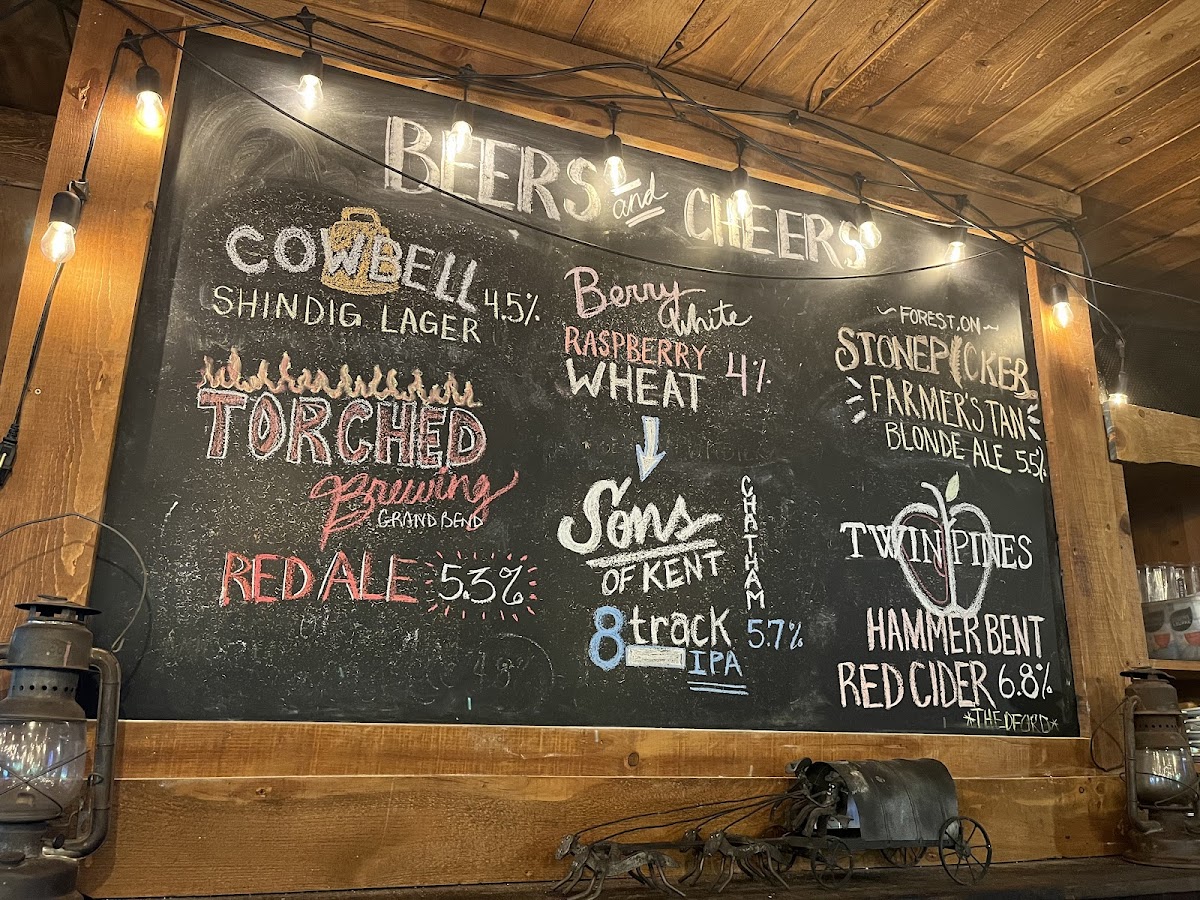 BEERS and CHEERS
COWBELL
SHINDIG LAGER 4.5%
TORCHED
Brewing
GRAND BEND
RED ALE 5.3%
Berry White
RASPBERRY
WHEAT 4%
Sons
OF KENT
CHATHAM
8track
IPA 5.7%
~ FOREST, ON ~
STONEPICKER
FARMER'S TAN
BLONDE ALE 5.5%
TWIN PINES
HAMMER BENT
RED CIDER 6.8%
*THEDFORD*